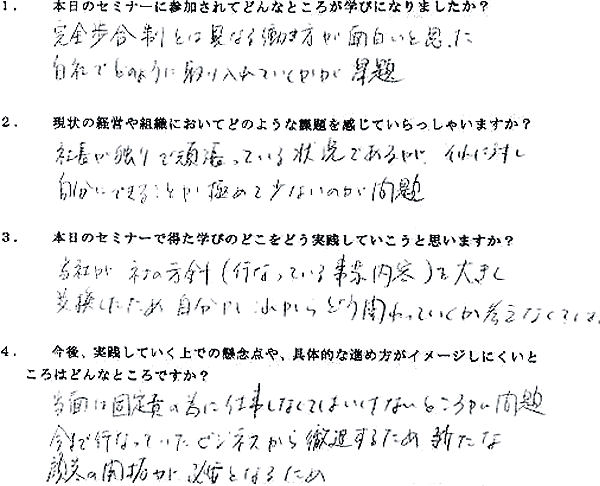 1. 本日のセミナーに参加されてどんなところが学びになりましたか？
完全歩合制とは異なる働き方が面白いと思った
自社でどのように取り入れていくかが課題
2. 現状の経営や組織においてどのような課題を感じていらっしゃいますか？
社長が独りで頑張っている状況であるが、それに対し
自分にできることが極めて少ないのが問題
3. 本日のセミナーで得た学びのどこをどう実践していこうと思いますか？
当社が 社の方針（行なっている事業内容）を大きく
変換したため 自分がこれからどう関わっていくか考えなくては
4. 今後、実践していく上での懸念点や、具体的な進め方がイメージしにくいと
ころはどんなところですか？
当面は固定費の為に仕事しなくてはいけないところが問題
今まで行なっていたビジネスから撤退するため 新たな
顧客の開拓が必要となるため